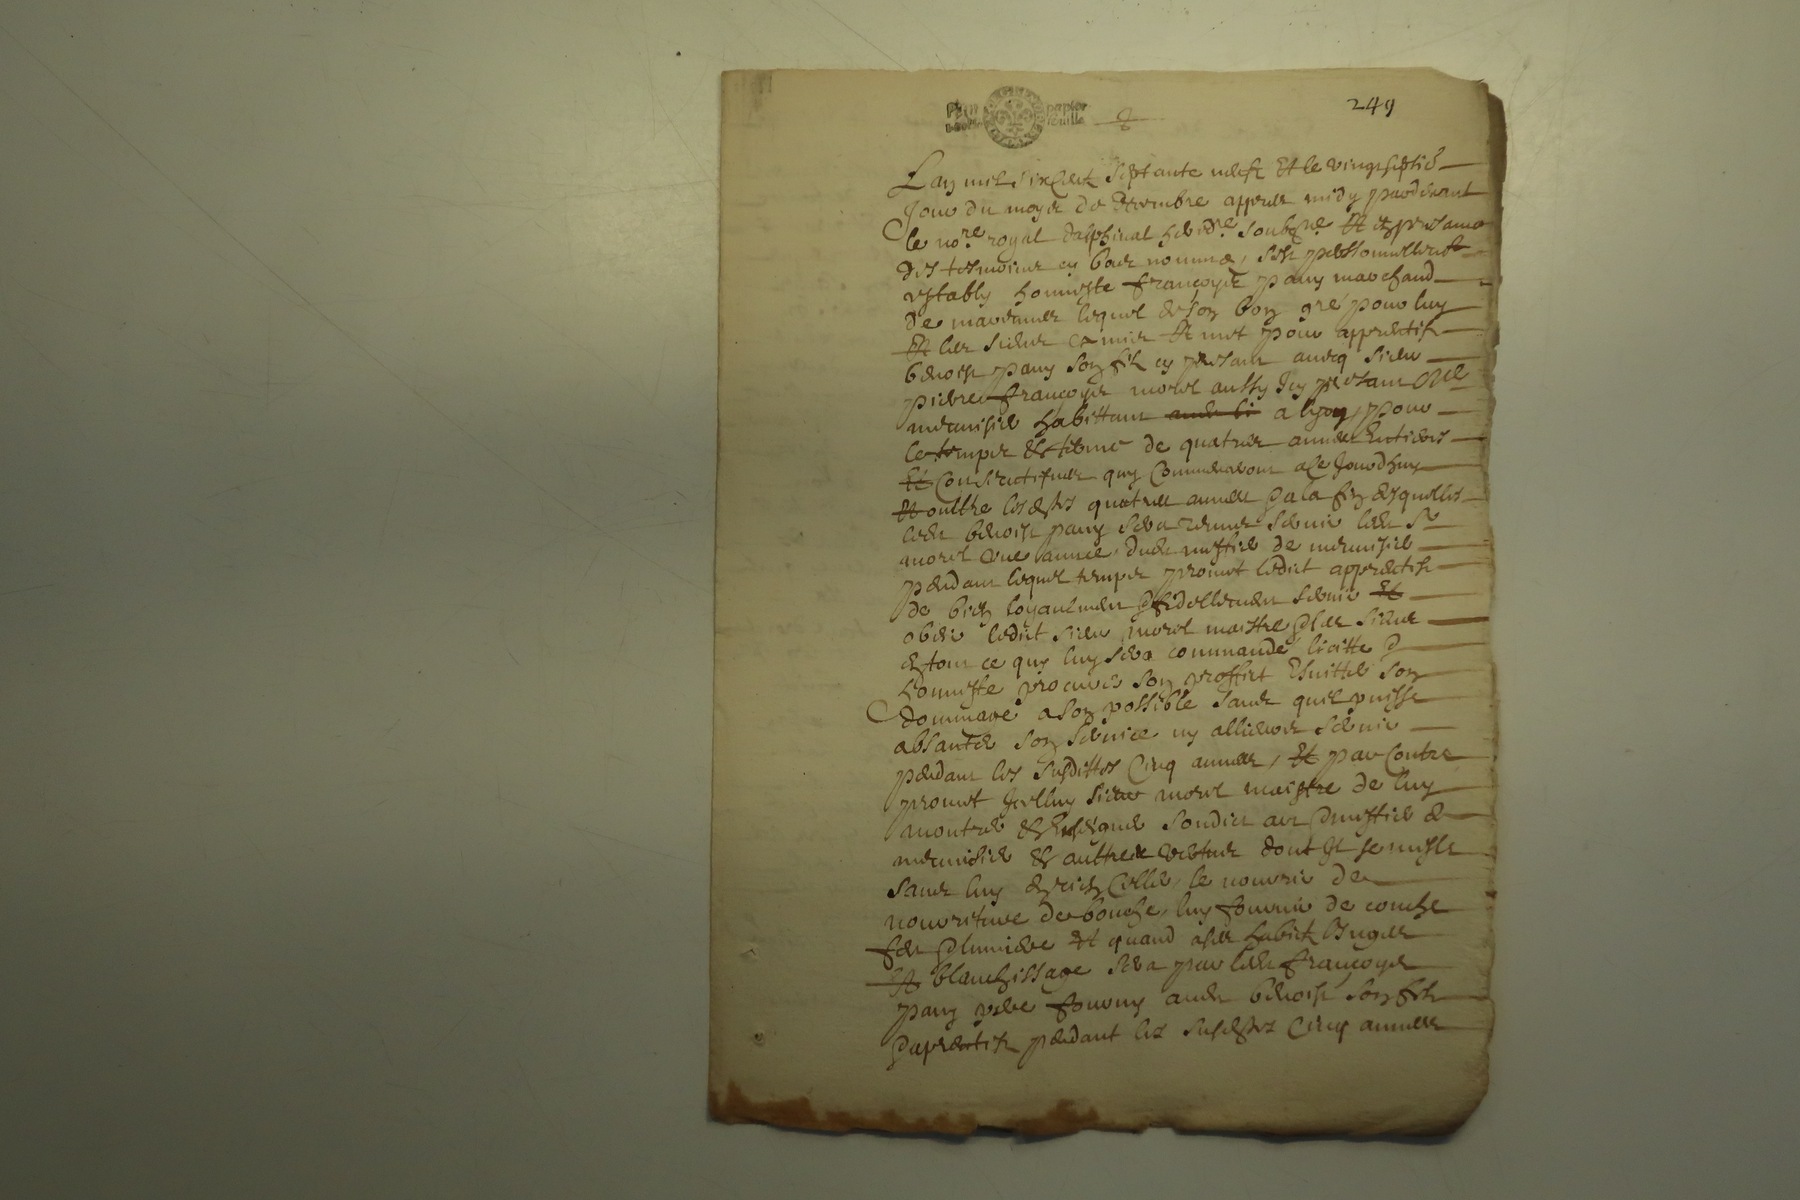 249
papier
feuille
Lan mil six cent septante neufz Et le vingseptie
Jour du moys de appres midy pardevant
le nore royal dalphinal soubzne Et en presance
des tesmoins en bas nommes, sest personnellement
estably honneste francoys pany marchand
de lequel de son bon gré pour luy
Et les siens a mis Et met pour apprentif
benoist pany son filz ycy presant aveq sieur
pierre francoys morel aussy Icy presant Me
menuisier habittant a lyon, pour
le temps & terme de quatres annes Entieres
Et Consecutifves quy Commenceront a ce Jourdhuy
Et oultre lesdittes quatres annes & a la fin desquelles
ledt benoist pany sera tenus servir ledt Sr
morel une année dudt mestier de menuisier
pendant lequel temps promet ledict apprentif
de bien loyaulment & fidellement servir Et
obeir ledict sieur morel maistre & les siens
en tout ce quy luy sera commandé licitte &
honneste procurer son proffict Esvitter son
dommage a son possible sans quil puisse
absanter son service ny allieurs servir
pendant les susdittes Cinq annes, Et par Contre
promet Icelluy sieur morel maistre de luy
montrer & Enseigner sondict art & mestier de
menuisier & aultres vertues dont Il se mesle
sans luy en rien Celler, le nourrir de
nourriture de bouche, luy fournir de couche
feu & lumiere Et quand a ses habitz linges
Et blanchissage sera par ledt francoys
pany pere fourny audt benoist son filz
& aprentif pendant les susdittes Cinq annes